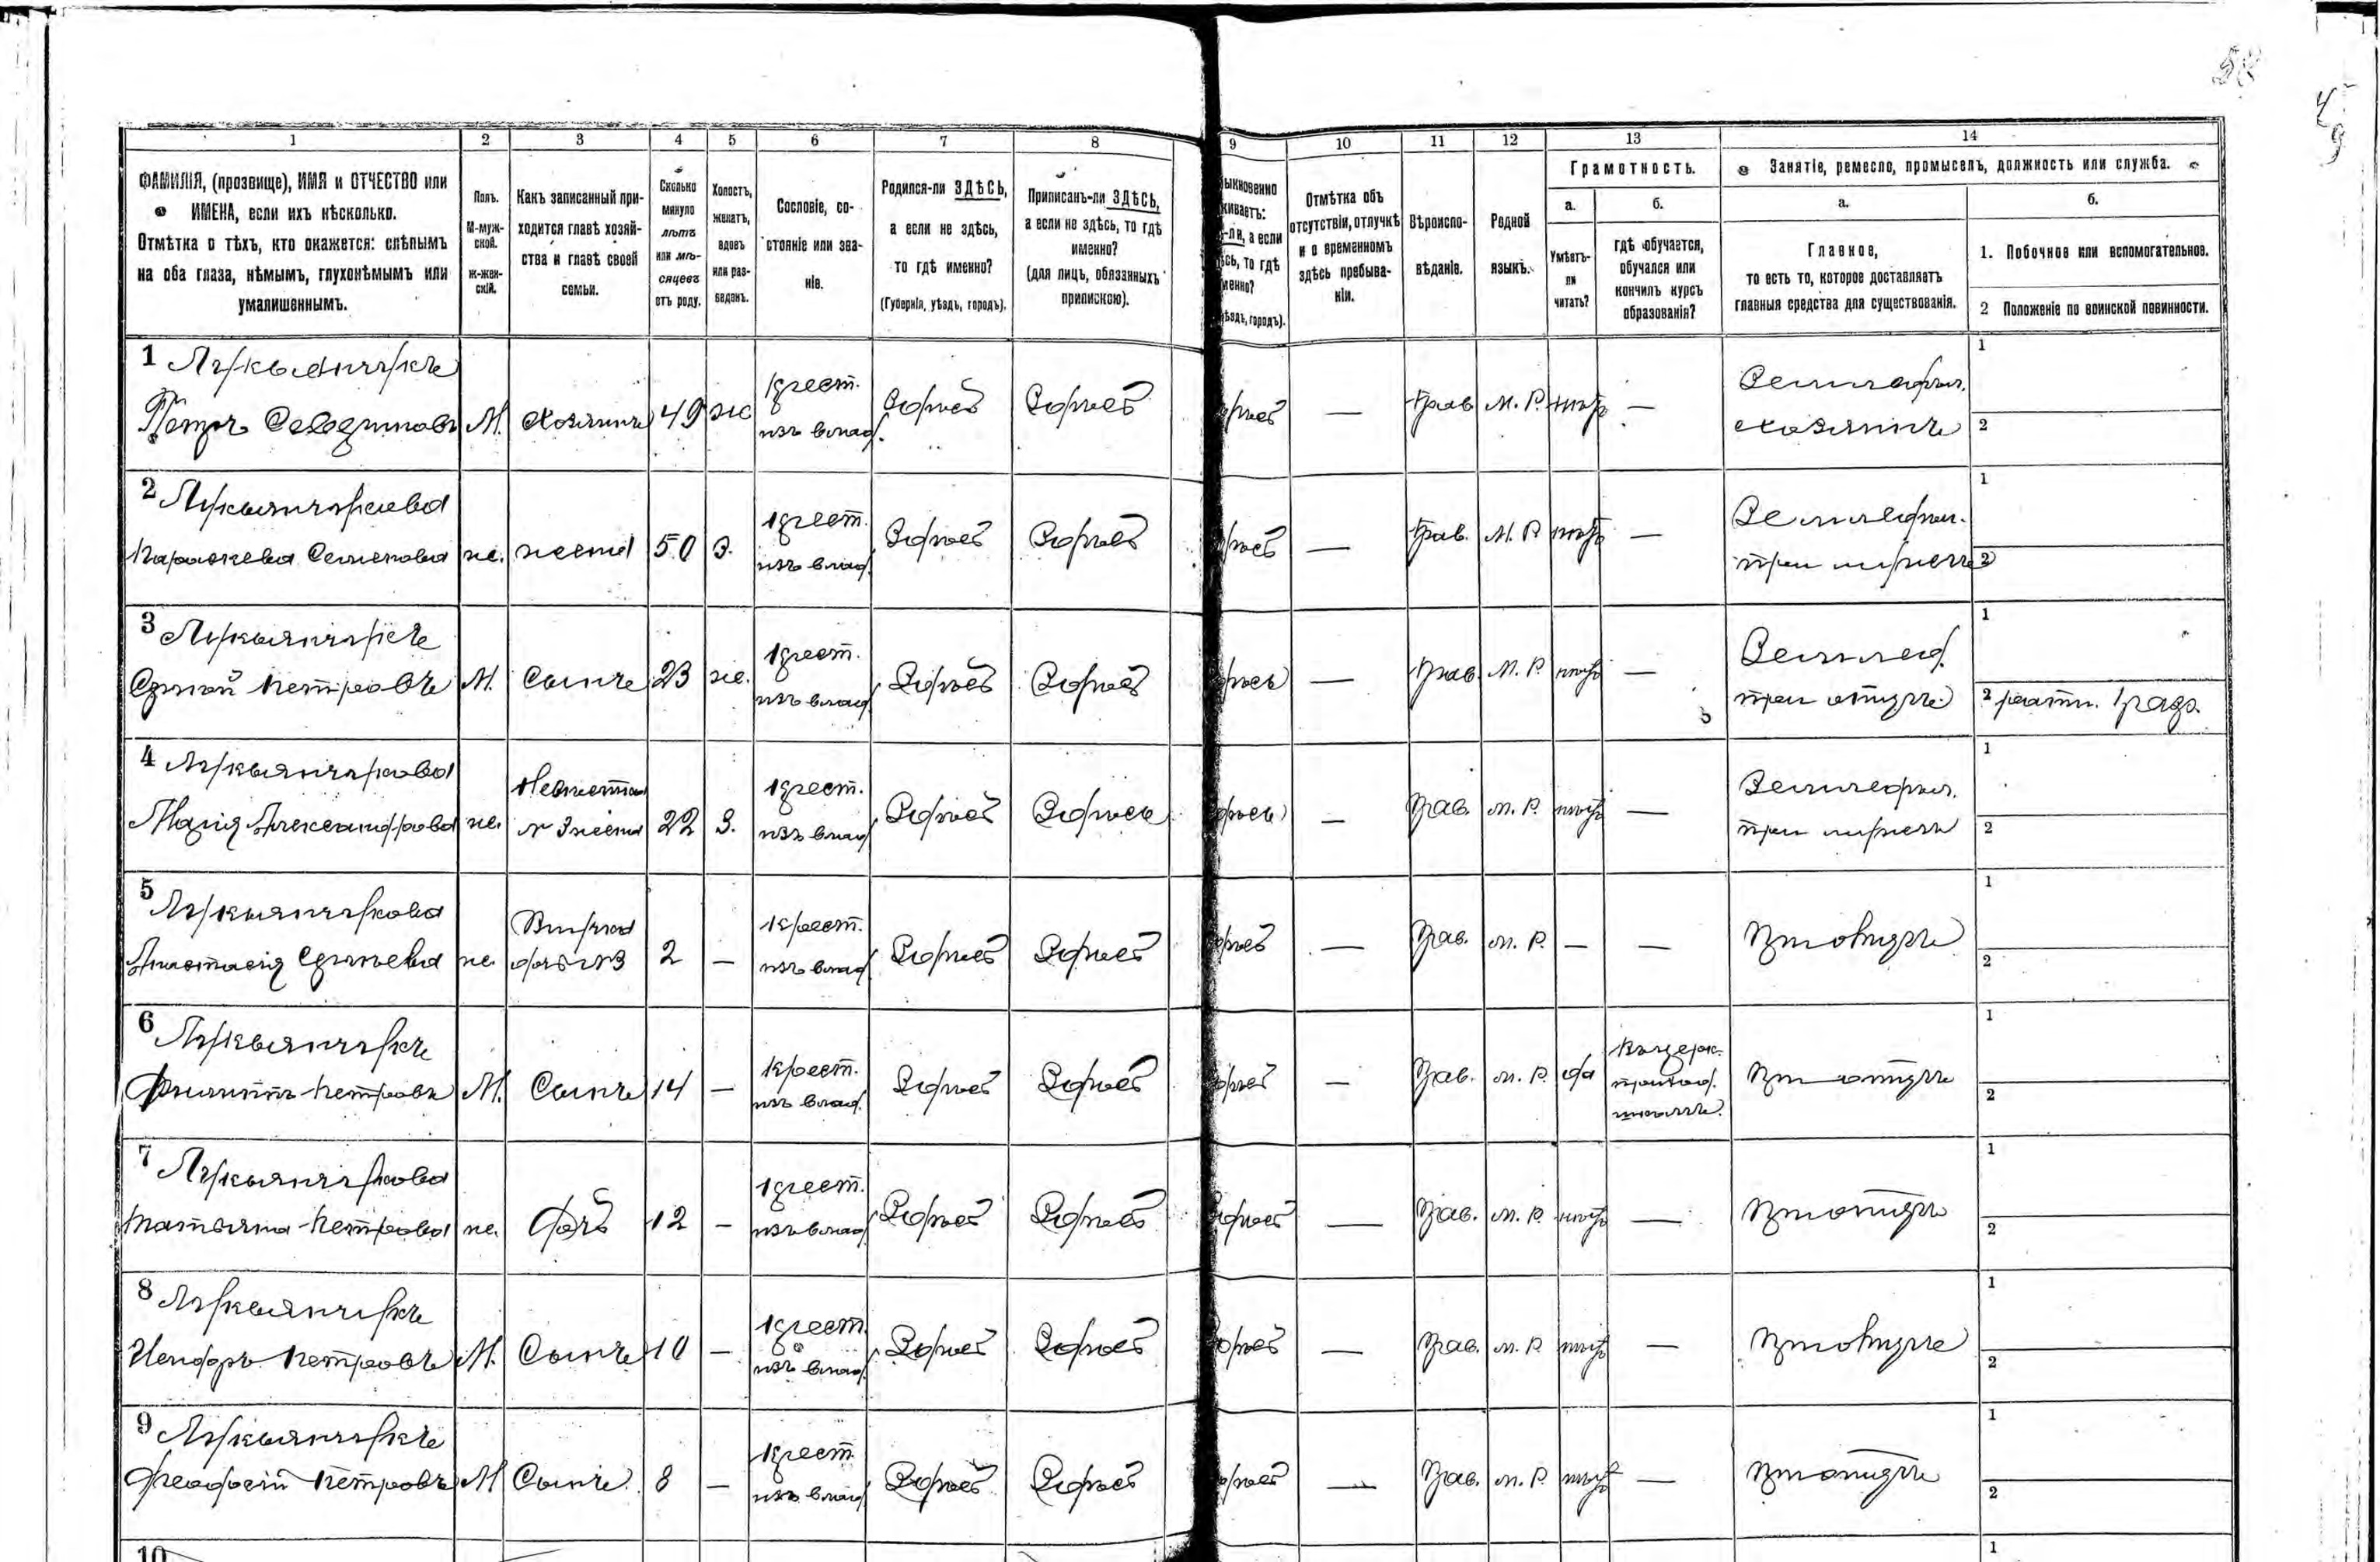 58
49
1 2 3 4 5 6 7 8 9 10 11 12 13 14
ФАМИЛІЯ, (прозвище), ИМЯ и ОТЧЕСТВО или
ИМЕНА, если ихъ нѣсколько.
Отмѣтка о тѣхъ, кто окажется: слѣпымъ
на оба глаза, нѣмымъ, глухонѣмымъ или
умалишеннымъ.
Полъ.
М-муж-
ской.
ж-жен-
скій.
Какъ записанный при-
ходится главѣ хозяй-
ства и главѣ своей
семьи.
Сколько
минуло
лѣтъ
или мѣ-
сяцевъ
отъ роду.
Холостъ,
женатъ,
вдовъ
или раз-
веденъ.
Сословіе, со-
стояніе или зва-
ніе.
Родился-ли ЗДѢСЬ,
а если не здѣсь,
то гдѣ именно?
(Губернія, уѣздъ, городъ).
Приписанъ-ли ЗДѢСЬ,
а если не здѣсь, то гдѣ
именно?
(для лицъ, обязанныхъ
припискою).
ыкновенно
живаетъ:
-ли, а если
сь, то гдѣ
менно?
ѣздъ, городъ).
Отмѣтка объ
отсутствіи, отлучкѣ
и о временномъ
здѣсь пребыва-
ніи.
Вѣроиспо-
вѣданіе.
Родной
языкъ.
Грамотность.
а.
Умѣетъ-
ли
читать?
б.
гдѣ обучается,
обучался или
кончилъ курсъ
образованія?
Занятіе, ремесло, промыселъ, должность или служба.
а.
Главное,
то есть то, которое доставляетъ
главныя средства для существованія.
б.
1. Побочное или вспомогательное.
2 Положеніе по воинской повинности.
1
Петръ М. Хозяинъ 49 ж крест. изъ влад. Здѣсь Здѣсь — Прав М. Р. нѣтъ — Земледѣл. хозяинъ 1 2
2
Семенова ж. жена 50 з. крест. изъ влад. Здѣсь Здѣсь — Прав. М. Р. нѣтъ — Земледѣл. при мужѣ 1 2
3
Петровъ М. Сынъ 23 ж. крест. изъ влад. Здѣсь Здѣсь — Прав. М. Р. нѣтъ — Землед. при отцѣ 1 2 ратн. 1 разр.
4
Марія Александрова ж. Невѣстка № 3 жена 22 З. крест. изъ влад. Здѣсь Здѣсь — Прав. М. Р. нѣтъ — Земледѣл. при мужѣ 1 2
5
Анастасія ж. дочь №3 2 — крест. изъ влад. Здѣсь Здѣсь — Прав. М. Р. — — При отцѣ 1 2
6
Филиппъ Петровъ М. Сынъ 14 — крест. изъ влад. Здѣсь Здѣсь — Прав. М. Р. да школѣ При отцѣ 1 2
7
Татьяна Петрова ж. дочь 12 — крест. изъ влад. Здѣсь Здѣсь — Прав. М. Р. нѣтъ — При отцѣ 1 2
8
Петровъ М. Сынъ 10 — крест. изъ влад. Здѣсь Здѣсь — Прав. М. Р. нѣтъ — При отцѣ 1 2
9
Феодосій Петровъ М Сынъ 8 — крест. изъ влад. Здѣсь Здѣсь — Прав. М. Р. нѣтъ — При отцѣ 1 2
10 1